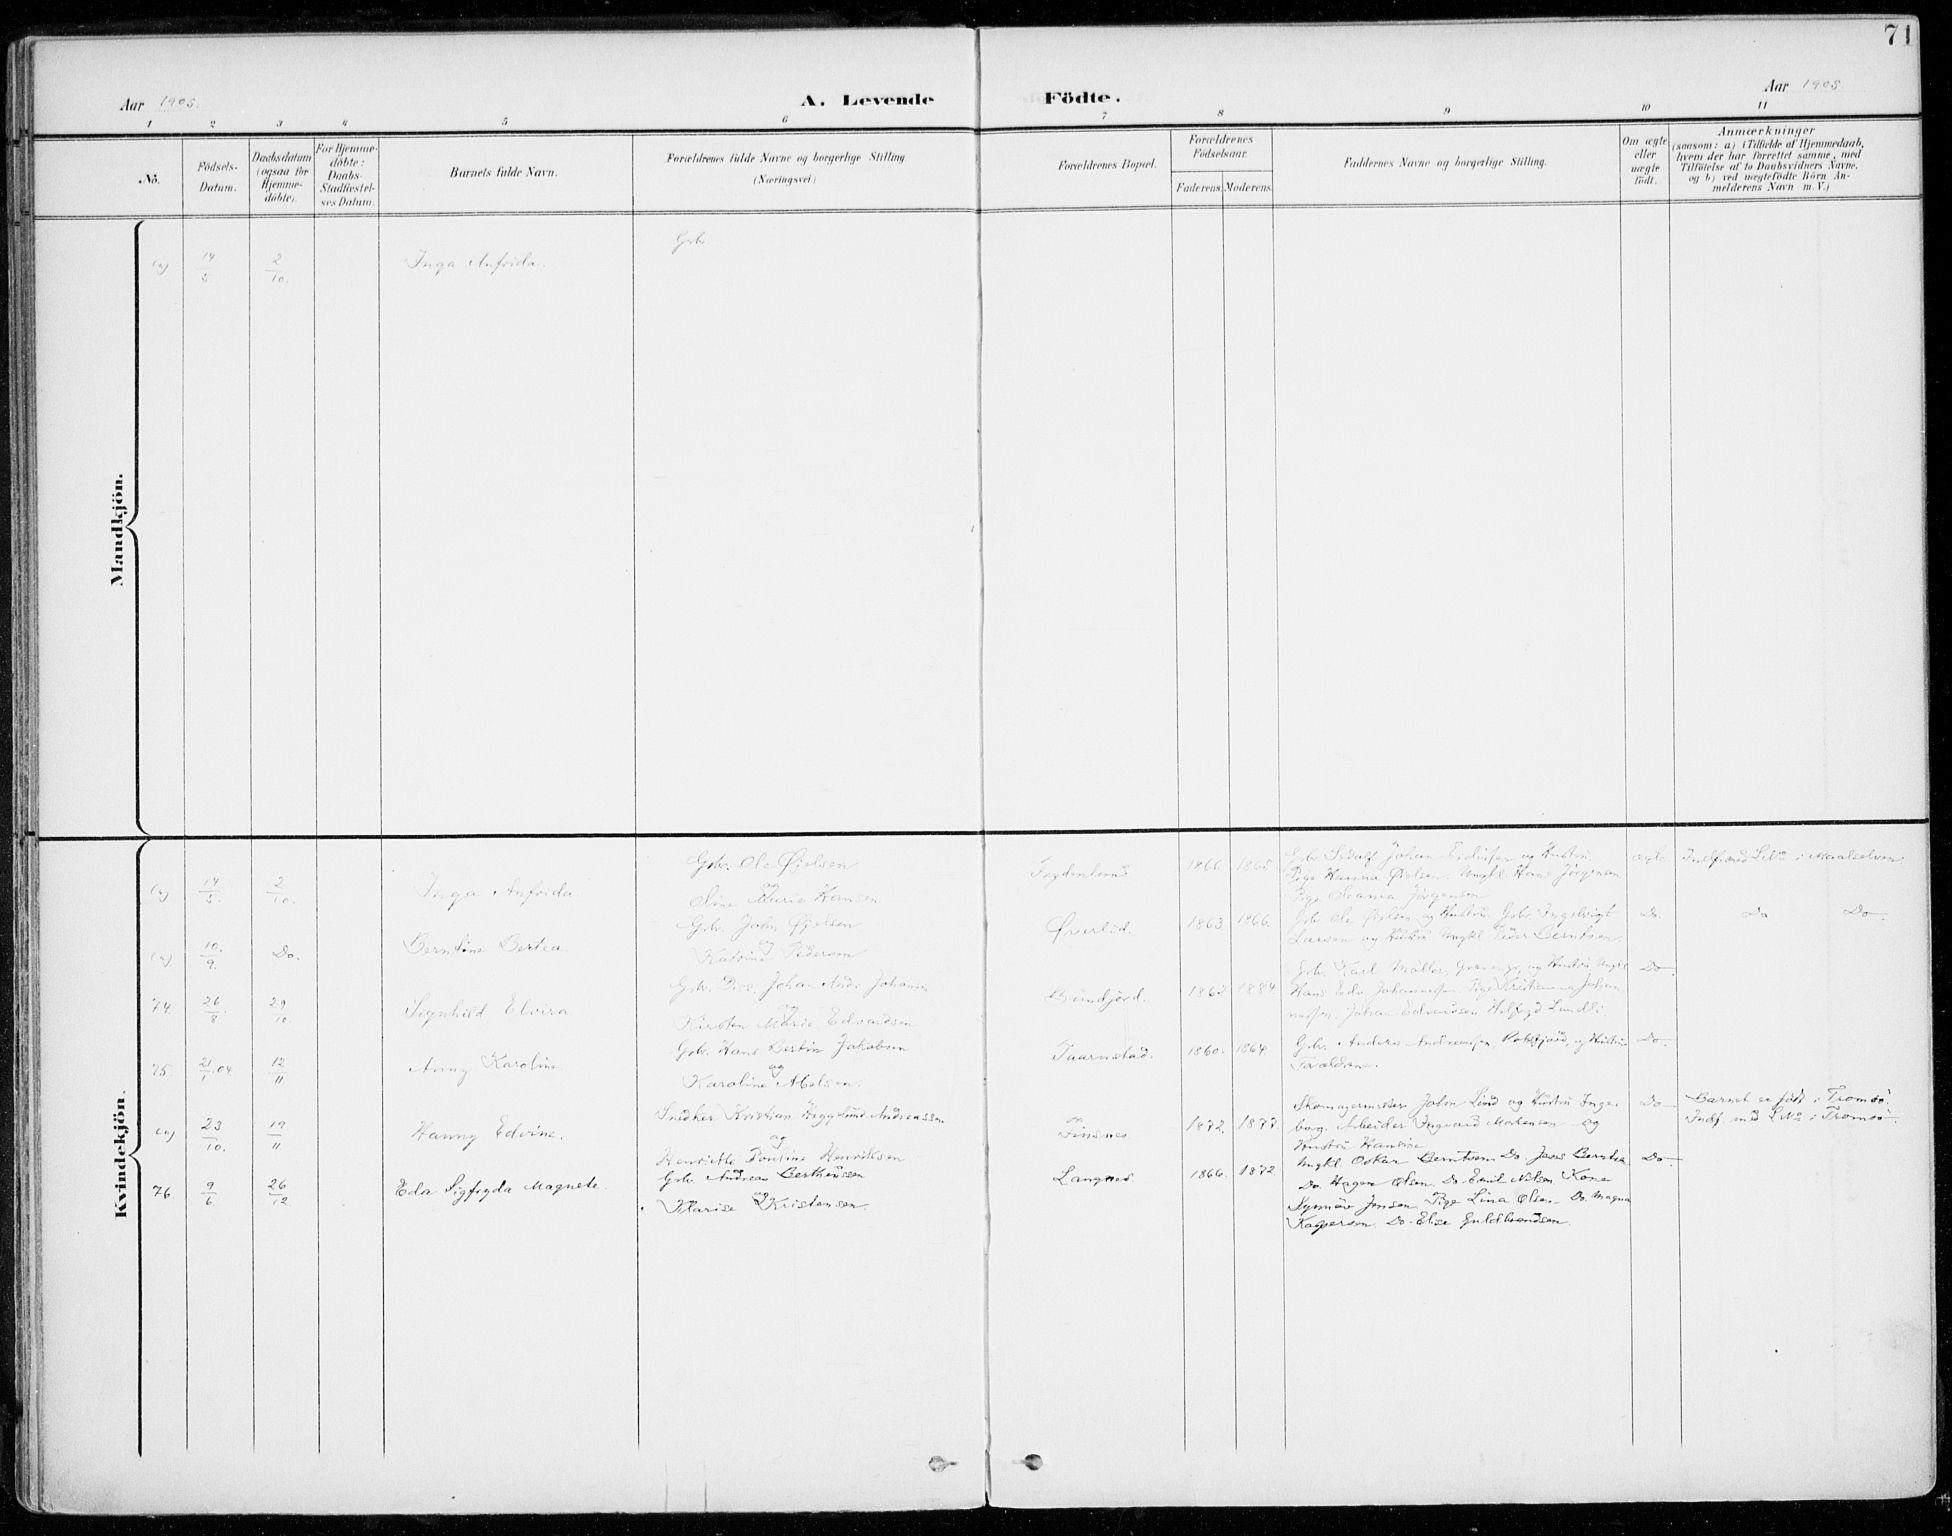 71
Aar 1905.
A. Levende Födte.
Aar 1905
1 2 3 4 5 6 7 8 9 10 11
No.
Födsels-Datum.
Daabsdatum (ogsaa for Hjemme-döbte).
For Hjemme-döbte: Daabs-Stadfæstel-ses Datum.
Barnets fulde Navn.
Forældrenes fulde Navne og borgerlige Stilling
(Næringsvei)
Forældrenes Bopæl.
Forældrenes Födselsaar.
Faderens. Moderens.
Faddernes Navne og borgerlige Stilling.
Om ægte eller uægte födt.
Anmærkninger
(saasom: a) i Tilfælde af Hjemmedaab,
hvem der har forrettet samme, med
Tilföielse af to Daabsvidners Navne.
og b) ved uægtefödte Börn An-
melderens Navn m. V.)
Mandkjön.
14/5 2/10. Inga Anfrida.
Gbr.
Kvindekjön.
14/5. 2/10. Inga Anfrida
Gbr. Ole Øielsen
og
Marie Hansen
1866 1865
Gbr. Johan og Hustru
Pige Hanna Øielsen. Ungkl. Hans Jörgensen
Pige Jörgensen
ægte
Indf. med i Maalselven
10/9. Do. Berntine Bertea.
Gbr. John Øielsen
og
Pedersen
Øverlid. 1863 1866.
Gbr. Ole Øielsen og Hustru. Gbr. Ingebrigt
Larsen og Hustru Ungkl. Peder Berntsen.
Do. Do Do.
74. 26/8 29/10. Signhild Elvira
Gbr. Johan Johansen
og
Kirsten Marie Edvardsen
1862 1884.
Gbr. Karl Möller, og Hustru Ungkl
Hans Edv. Johannessen. Pige Kristianna Johan
Johan Edvardsen Lundli.
Do.
75. 21/1.04. 12/11 Anny Karoline.
Gbr. Hans Bertin Jakobsen
og
Karoline Abelsen.
1860. 1864
Gbr. Anders og Hustru
Forældrene.
Do.
23/10. 19/11 Hanny Edvine.
Snedker Kristian Heggelund Andreassen
og
Henriette Pauline Henriksen
Finsnes 1872. 1877.
Skomagermester John Lind og Hustru Inge-
borg. Arbeider Ingvard Mortensen og
Hustru Hansine
Do
Barnet er födt i Tromsö.
Indf. med i Tromsö.
76 9/6. 26/12 Eda Sigfryda Magnete.
Gbr. Andreas Berthéussen
og
Klarise Kristensen.
Langnes. 1866. 1872.
Ungkl Oskar Berntsen. Do. Jens Berntsen
Do. Hagen Olsen. Do. Emil Nilsen Kone
Synnöv Jensen. Pige Lina Olsen. Do. Magna
Kaspersen. Do. Elise Guldbrandsen.
Do.